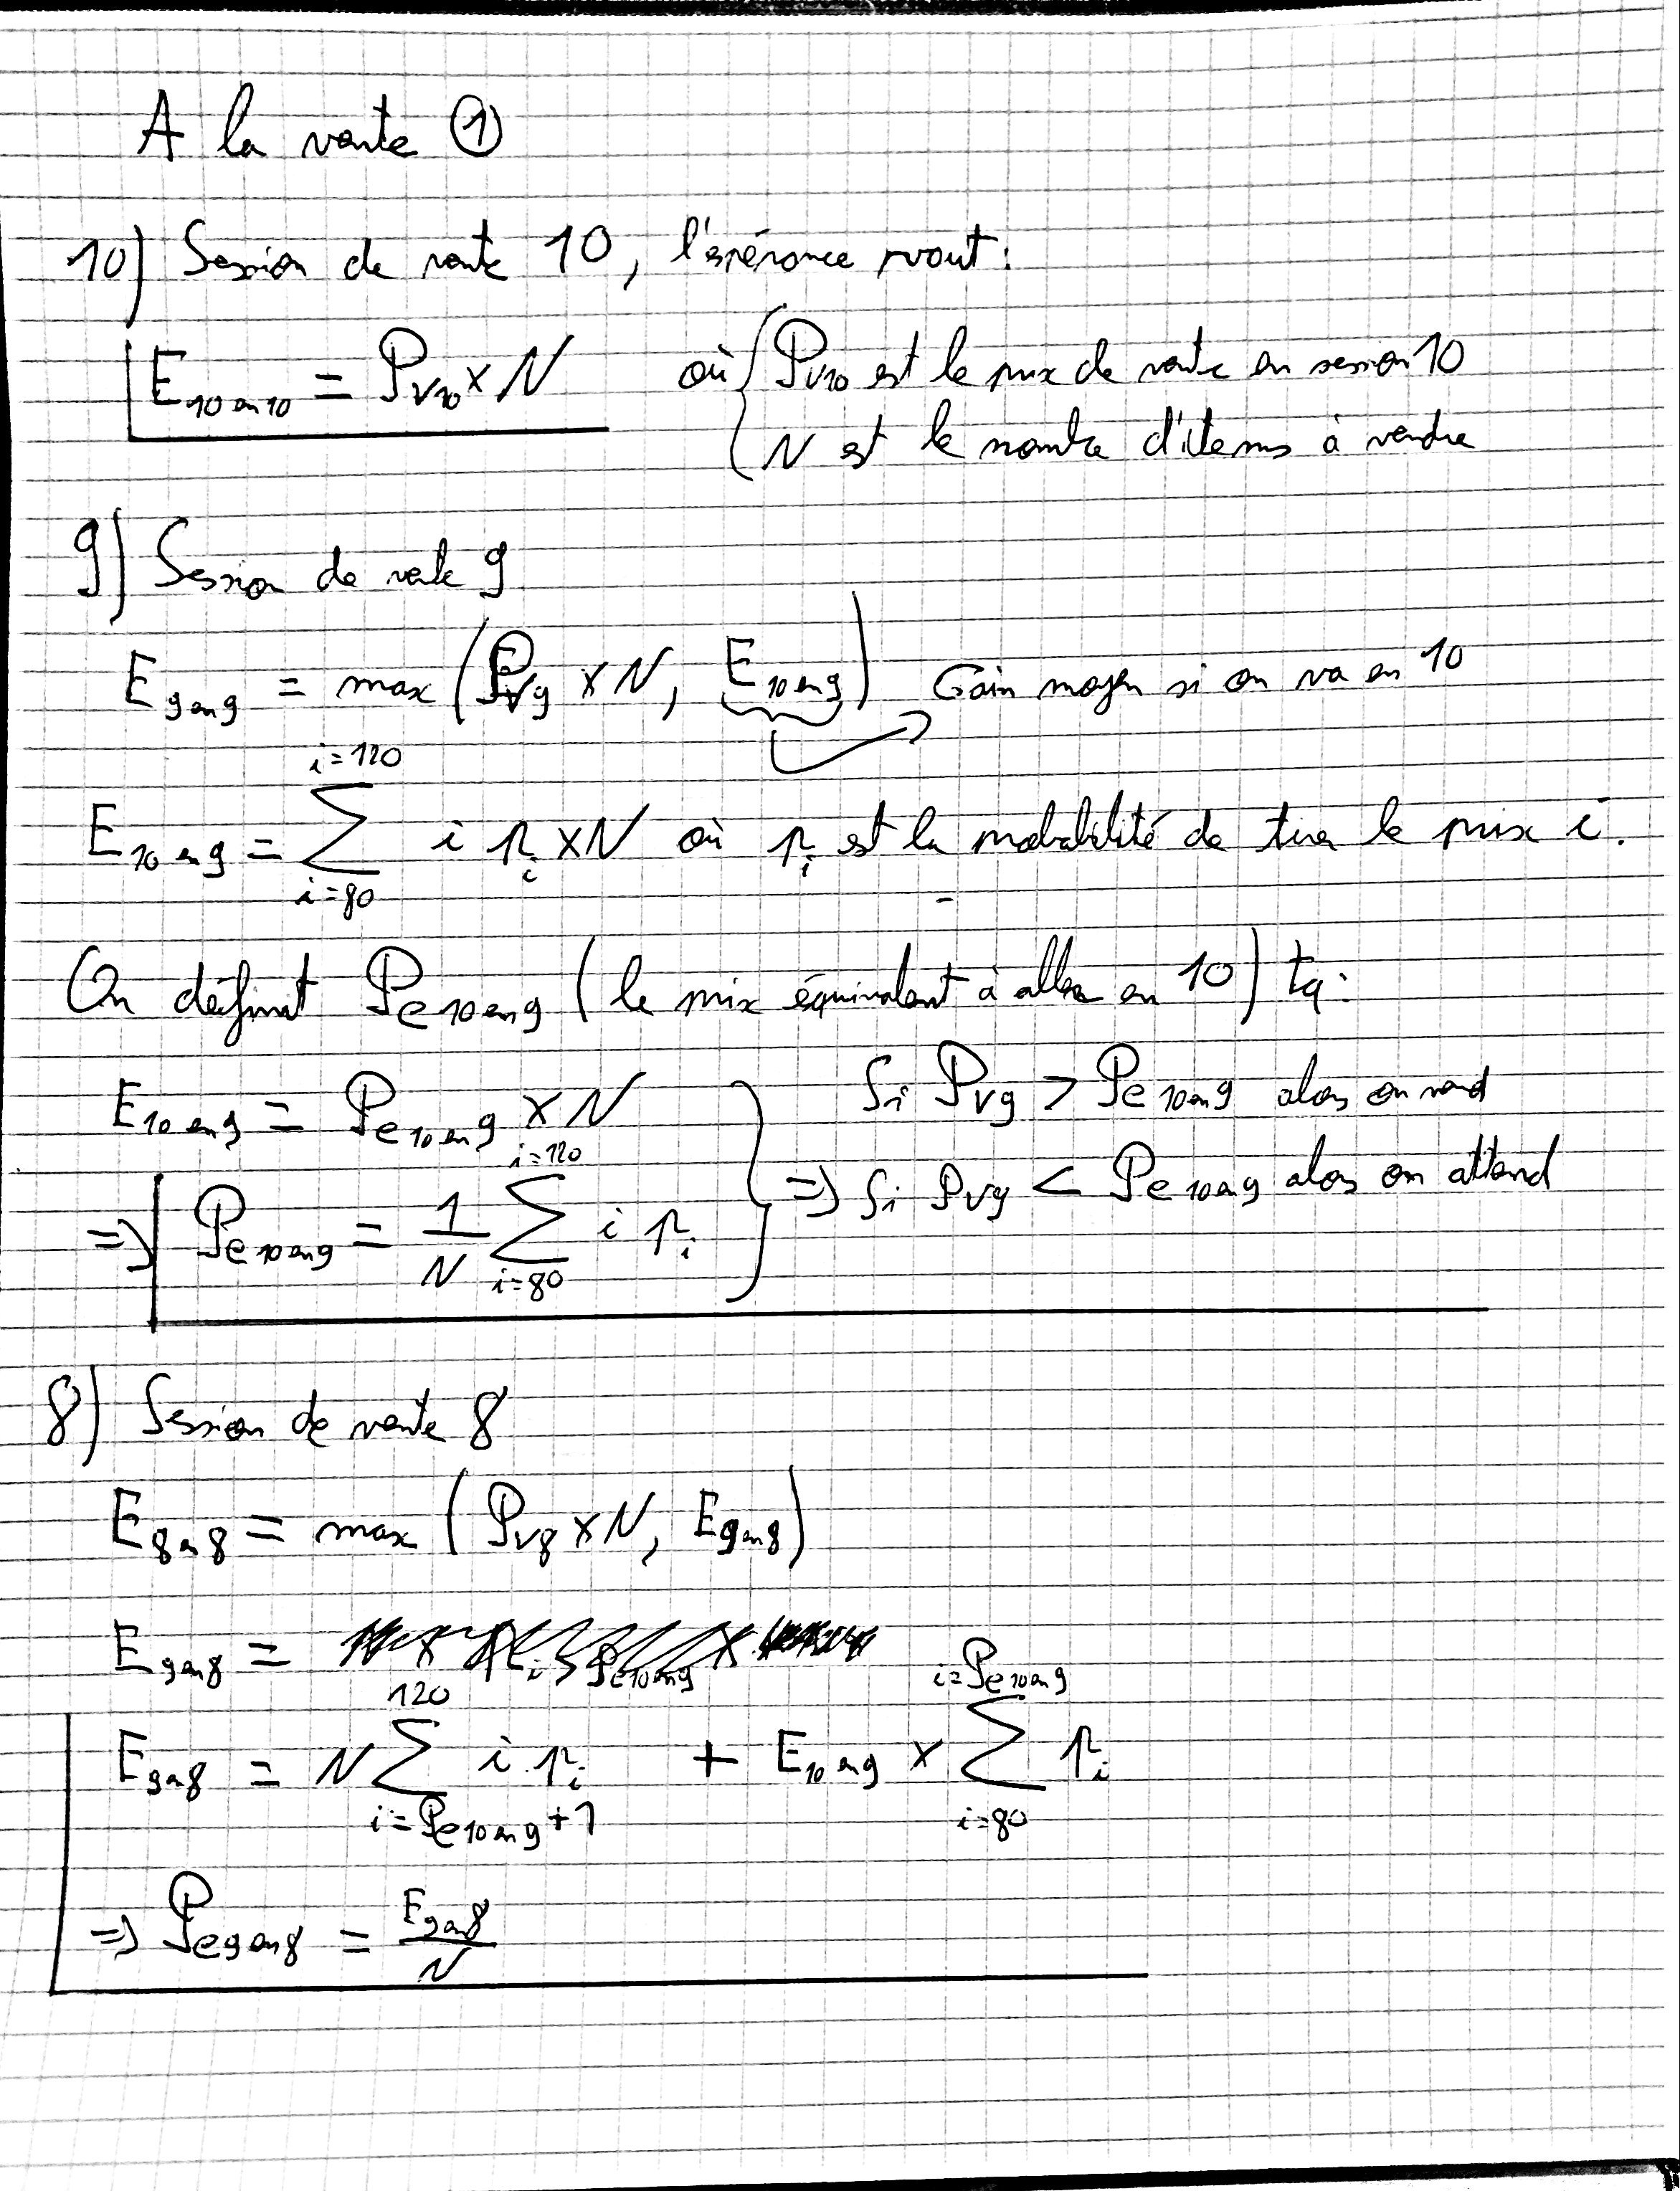 A la vente ①
10) Session de vente 10, l'espérance vaut :
E_{10 en 10} = P_{V10} × N où { P_{V10} est le prix de vente en session 10
N est le nombre d'items à vendre
9) Session de vente 9
E_{9 en 9} = max (P_{V9} × N, E_{10 en 9}) Gain moyen si on va en 10
E_{10 en 9} = \sum_{i=80}^{i=120} i p_i × N où p_i est la probabilité de tirer le prix i.
On définit P_{e 10 en 9} (le prix équivalent à aller en 10) tq :
E_{10 en 9} = P_{e 10 en 9} × N } Si P_{V9} > P_{e 10 en 9} alors on vend
=> P_{e 10 en 9} = \frac{1}{N} \sum_{i=80}^{i=120} i p_i => Si P_{V9} < P_{e 10 en 9} alors on attend
8) Session de vente 8
E_{8 en 8} = max (P_{V8} × N, E_{9 en 8})
E_{9 en 8} =
E_{9 en 8} = N \sum_{i=P_{e 10 en 9}+1}^{120} i p_i + E_{10 en 9} × \sum_{i=80}^{i=P_{e 10 en 9}} p_i
=> P_{e 9 en 8} = \frac{E_{9 en 8}}{N}